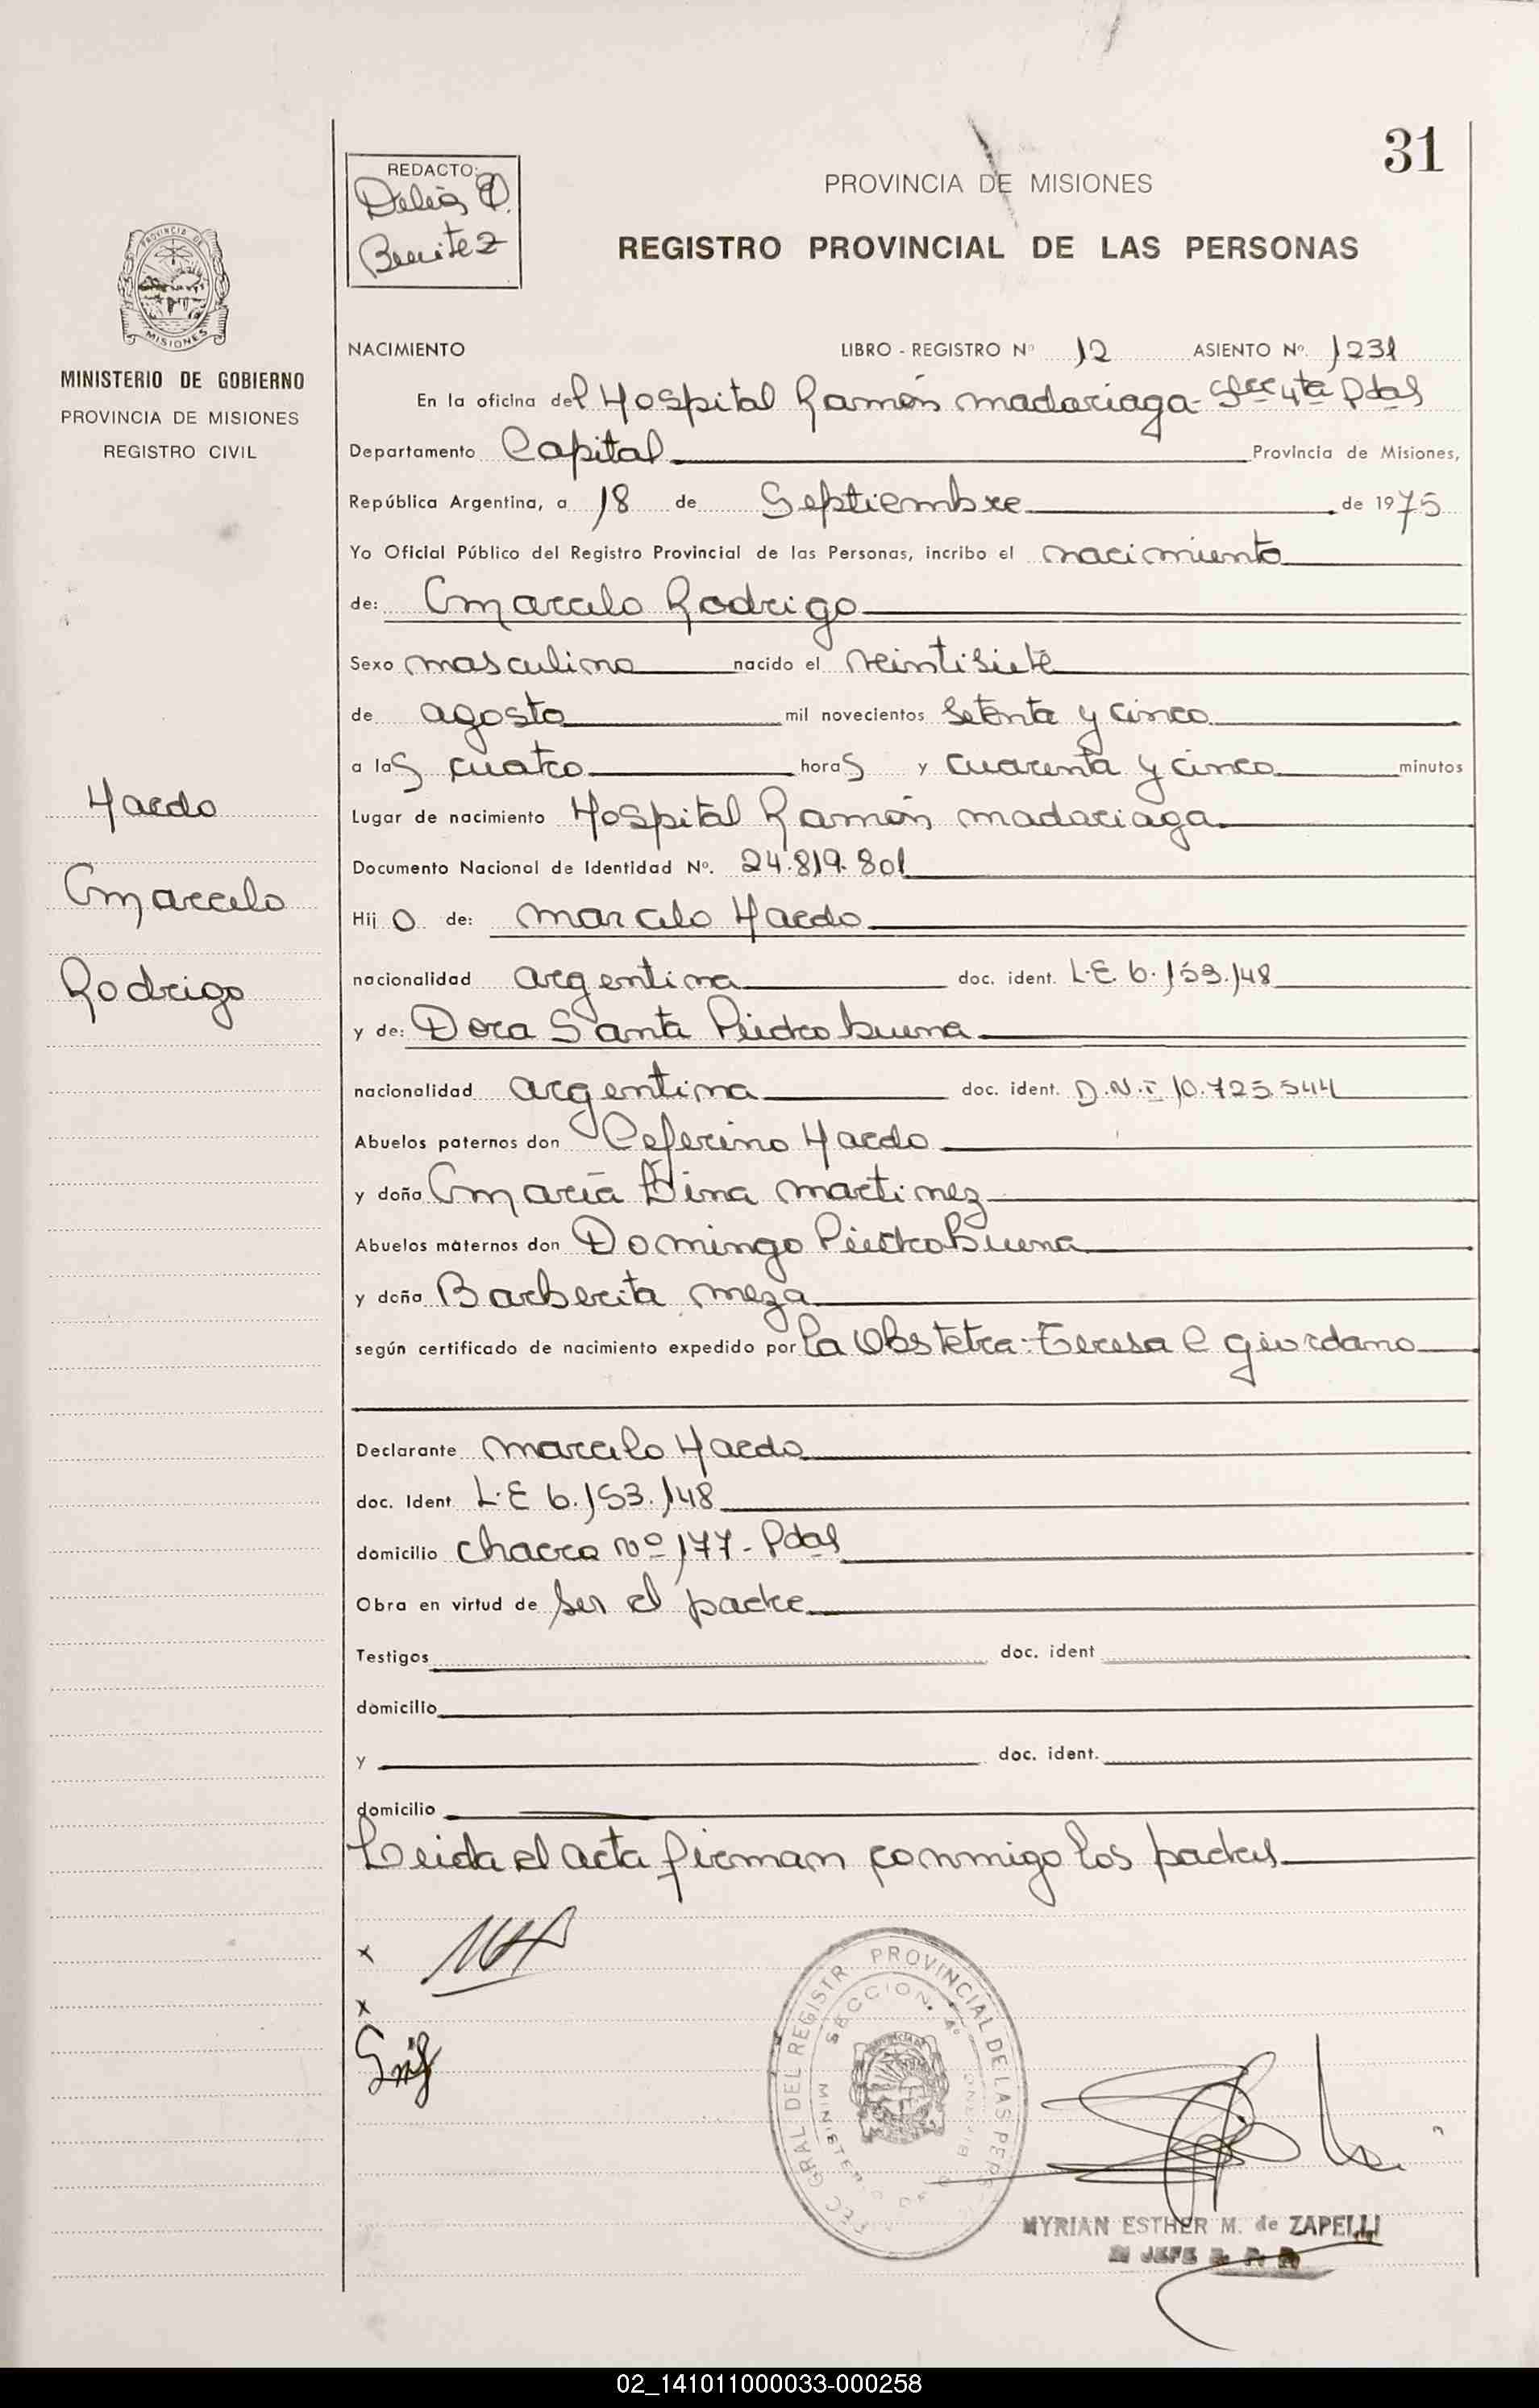 31
REDACTO:
Delia
Benitez
PROVINCIA DE MISIONES
REGISTRO PROVINCIAL DE LAS PERSONAS
PROVINCIA DE
MISIONES
MINISTERIO DE GOBIERNO
PROVINCIA DE MISIONES
REGISTRO CIVIL
Haedo
Marcelo
Rodrigo
NACIMIENTO LIBRO - REGISTRO Nº 12 ASIENTO Nº. 1231
En la oficina del Hospital Ramón madariaga- Secc 4ta Pdas
Departamento Capital Provincia de Misiones,
República Argentina, a 18 de Septiembre de 1975
Yo Oficial Público del Registro Provincial de las Personas, incribo el nacimiento
de: Marcelo Rodrigo
Sexo masculino nacido el veintisiete
de agosto mil novecientos setenta y cinco
a las cuatro horas y cuarenta y cinco minutos
Lugar de nacimiento Hospital Ramón madariaga
Documento Nacional de Identidad Nº. 24.819.801
Hijo de: marcelo Haedo
nacionalidad argentina doc. ident. L.E. 6.153.148
y de: Dora Santa Piedrabuena
nacionalidad argentina doc. ident. D.N.I 10.725.544
Abuelos paternos don Ceferino Haedo
y doña María Dina martinez
Abuelos maternos don Domingo PiedraBuena
y doña Barberita meza
según certificado de nacimiento expedido por la Obstetra: Teresa C giordano
Declarante marcelo Haedo
doc. Ident L.E 6.153.148
domicilio chacra nº 177- Pdas
Obra en virtud de ser el padre
Testigos doc. ident
domicilio
y doc. ident.
domicilio
Leida el acta firman conmigo los padres
x
x
GRAL DEL REGISTR. PROVINCIAL DE LAS PERS
SECCION 4º
MINISTERIO DE
MYRIAN ESTHER M. de ZAPELLI
JEFE
02_141011000033-000258